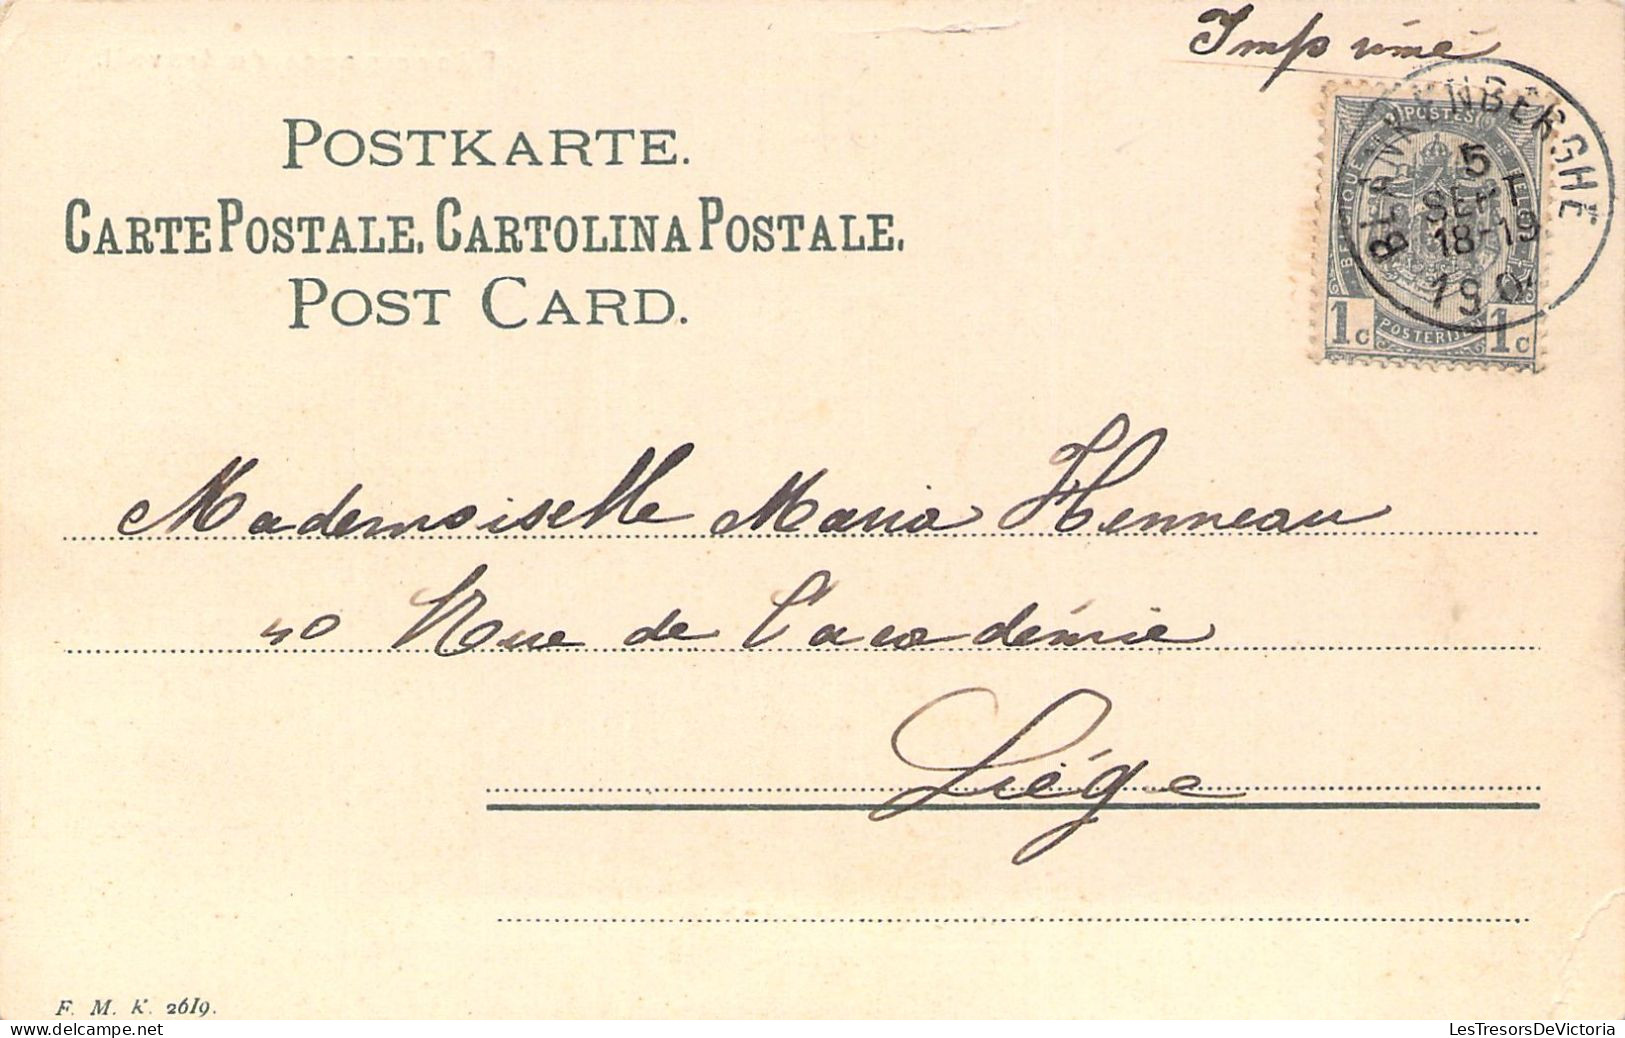 Imprimé
POSTKARTE.
CARTE POSTALE. CARTOLINA POSTALE.
POST CARD.
BLANKENBERGHE
5
SEPT
18-19
190
POSTES
BELGIQUE
POSTERIJEN
1c 1c
Mademoiselle Maria Henneau
40 Rue de l'académie
Liége
F. M. K. 2619.
LesTresorsDeVictoria